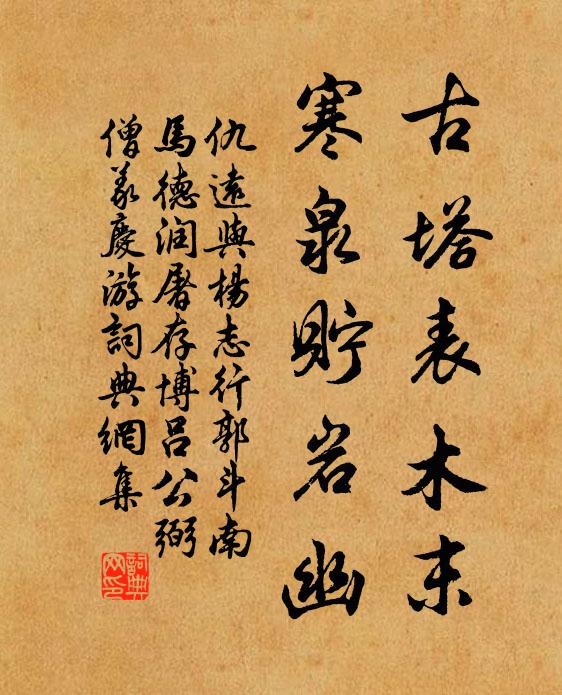 古塔表木末
寒泉貯岩幽
仇遠與楊志行郭斗南
馬德潤屠存博呂公弼
僧義慶游詞典網集
詞典網印